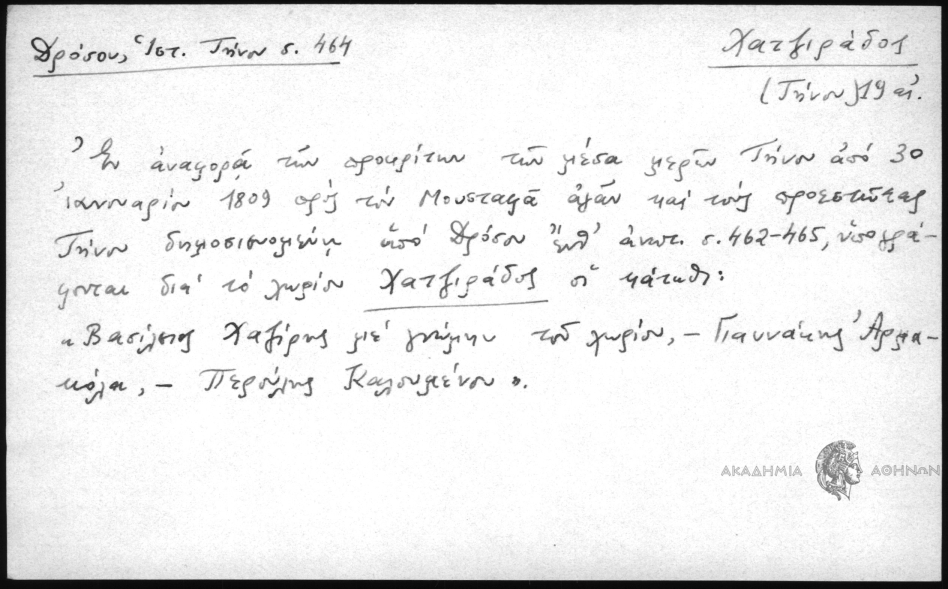 Δρόσου, Ἱστ. Τήνου σ. 464
Χατζιράδος
(Τήνου) 19 αἰ.
Ἐν ἀναφορᾷ τῶν προκρίτων τῶν μέσα μερῶν Τήνου ἀπό 30
Ἰανουαρίου 1809 πρός τόν Μουσταφᾶ ἀγᾶν καί τούς προεστῶτας
Τήνου δημοσιευομένῃ ὑπό Δρόσου ἔνθ' ἀνωτ. σ. 462-465, ὑπογρά-
φονται διά τό χωρίον Χατζιράδος οἱ κάτωθι:
« Βασίλειος Χαζίρης μέ γνώμην τοῦ χωρίου, – Γιαννάκης Ἀρμα-
κόλα, – Περούλης Καλουμένου ».
ΑΚΑΔΗΜΙΑ ΑΘΗΝΩΝ